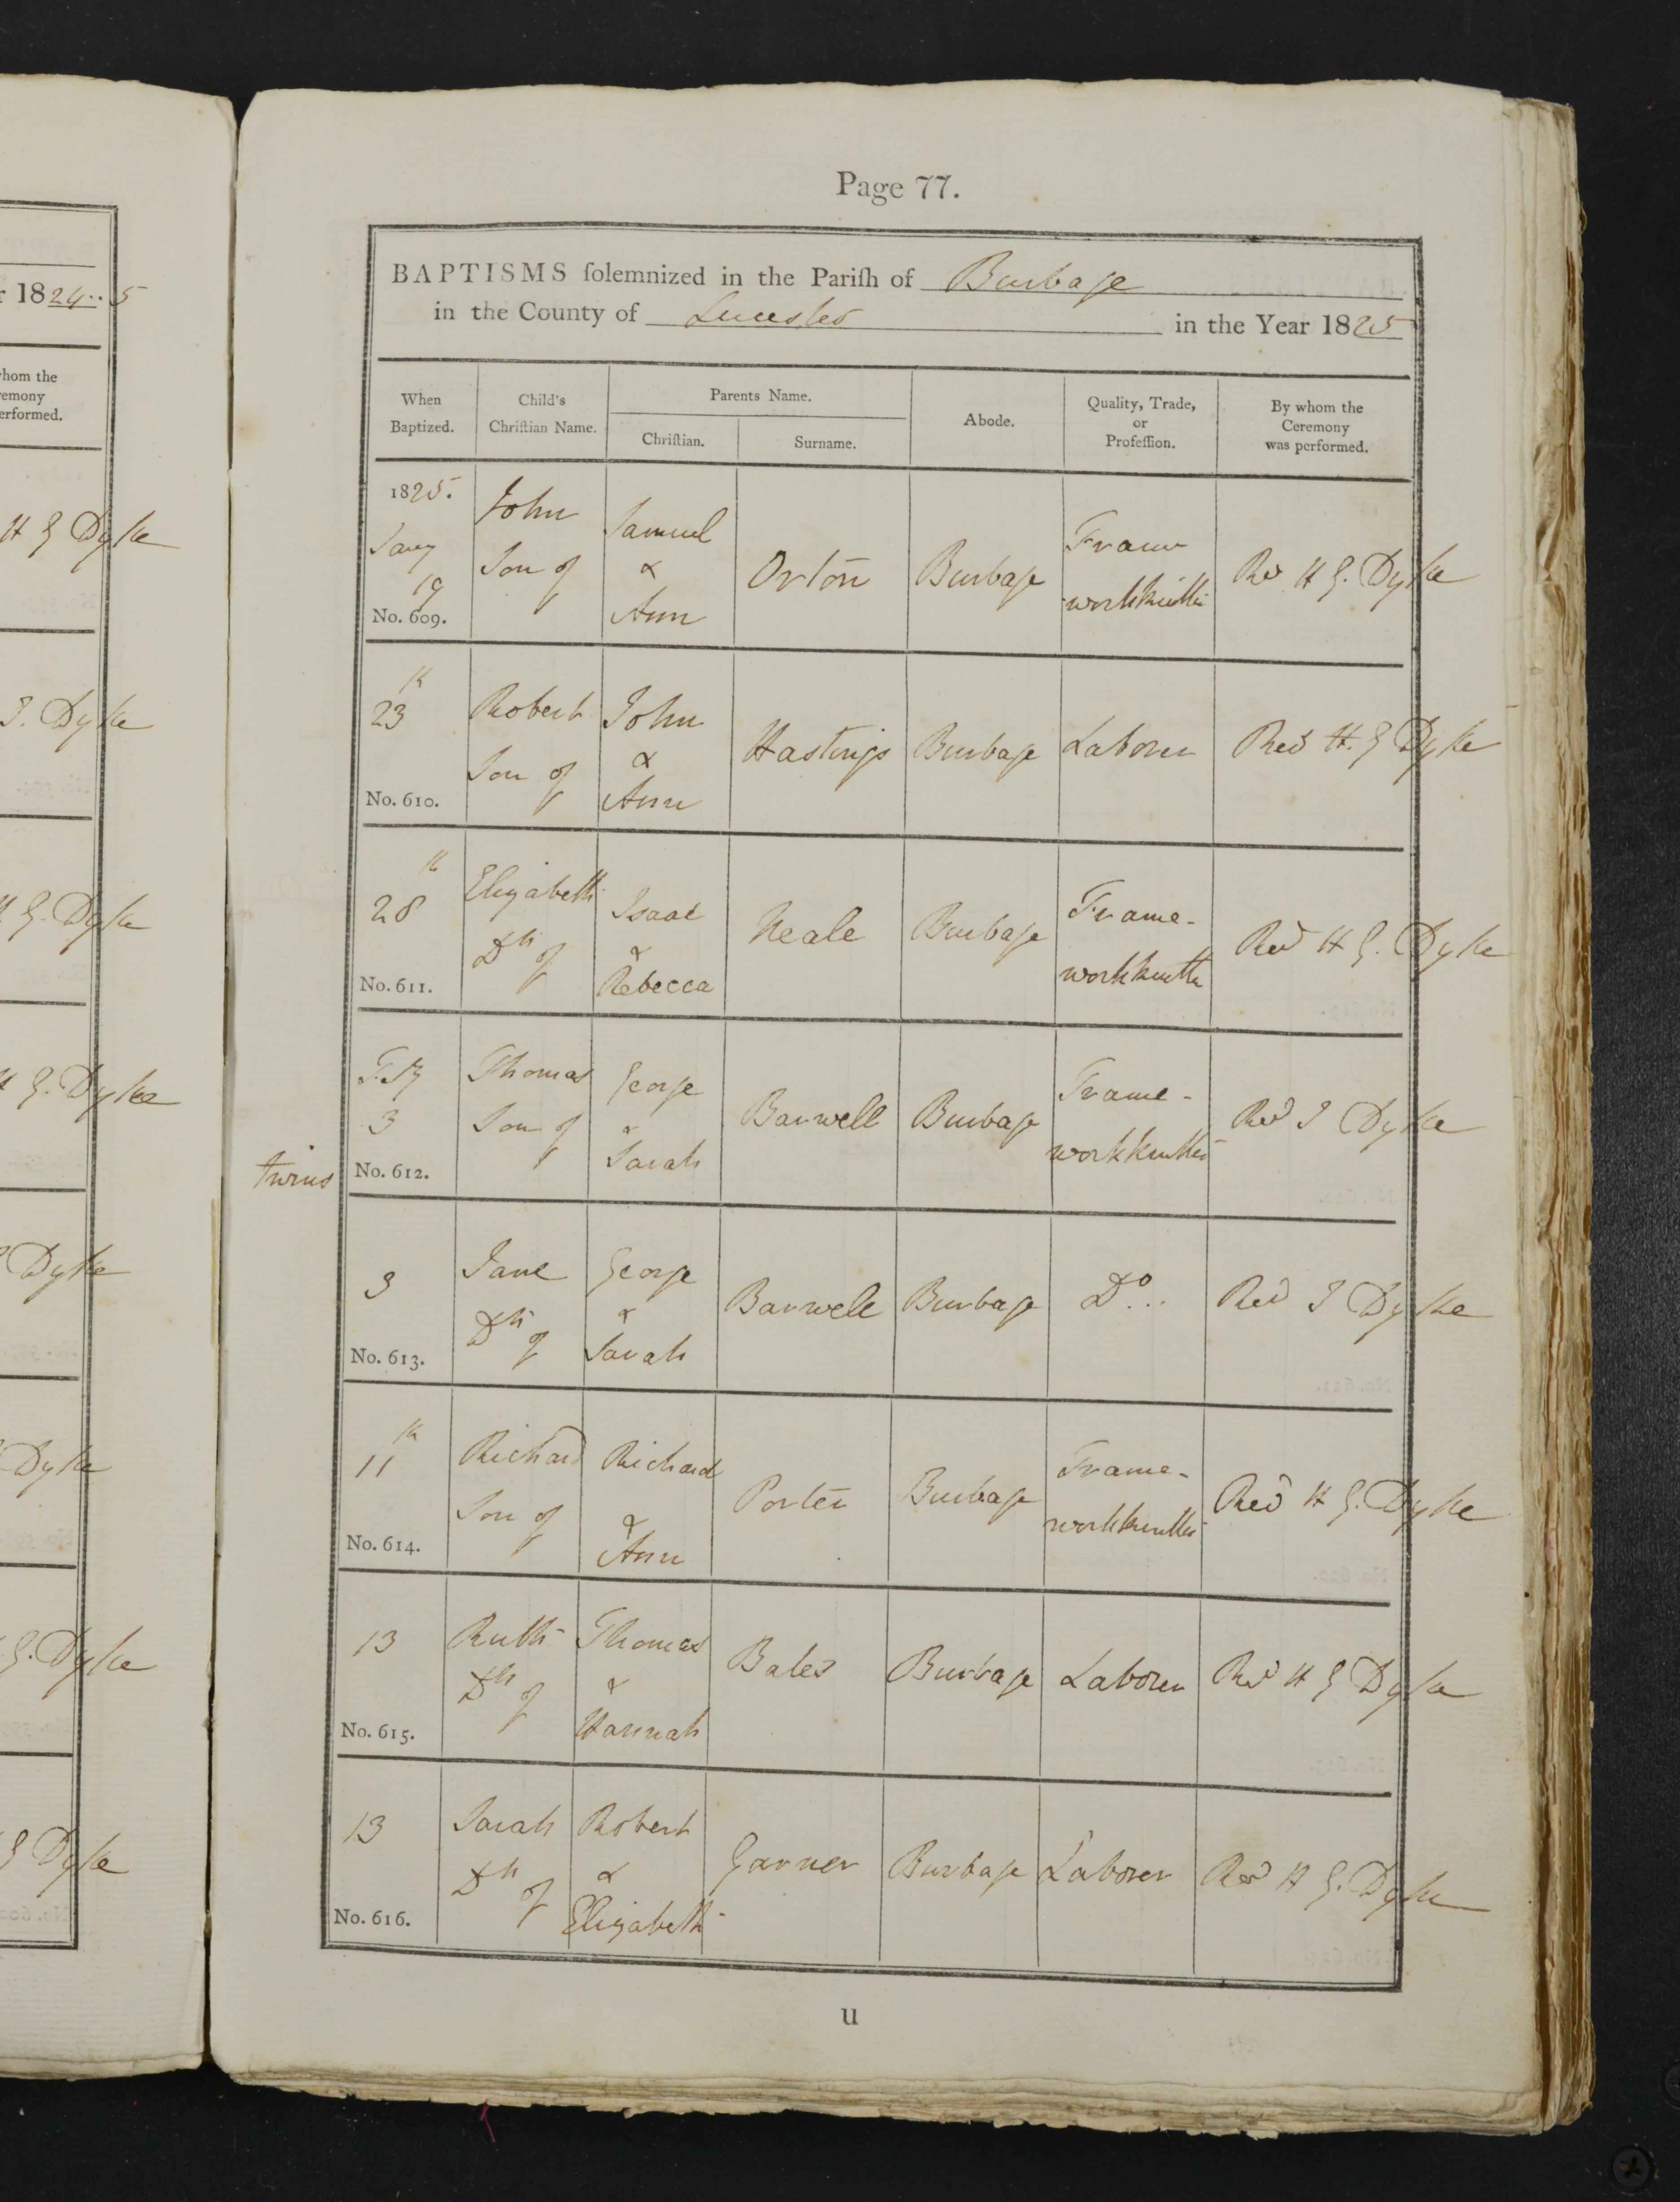 r 1824..5
Page 77.
BAPTISMS ſolemnized in the Pariſh of Burbage
in the County of Leicester in the Year 1825
whom the
remony
erformed.
When
Baptized.
Child's
Chriſtian Name.
Parents Name.
Chriſtian.
Surname.
Abode.
Quality, Trade,
or
Profeſſion.
By whom the
Ceremony
was performed.
1825.
Jany
19
No. 609.
John
Son of
Samuel
&
Ann
Orton
Burbage
Frame
workknitter
Rev H G. Dyke
23th
No. 610.
Robert
Son of
John
&
Ann
Hastings
Burbage
Laborer
Rev H. G Dyke
28th
No. 611.
Elizabeth
Dtr of
Isaac
&
Rebecca
Neale
Burbage
Frame-
workknitter
Rev H G. Dyke
Feby
3
twins
No. 612.
Thomas
Son of
George
&
Sarah
Barwell
Burbage
Frame-
workknitter
Rev J Dyke
3
No. 613.
Jane
Dtr of
George
&
Sarah
Barwell
Burbage
Do...
Rev J Dyke
11th
No. 614.
Richard
Son of
Richard
&
Ann
Porter
Burbage
Frame-
workknitter
Rev H G. Dyke
13
No. 615.
Ruth
Dtr of
Thomas
&
Hannah
Bales
Burbage
Laborer
Rev H G Dyke
13
No. 616.
Sarah
Dtr of
Robert
&
Elizabeth
Garner
Burbage
Laborer
Rev H G. Dyke
H G Dyke
J. Dyke
H G. Dyke
H G. Dyke
Dyke
Dyke
G. Dyke
G Dyke
u